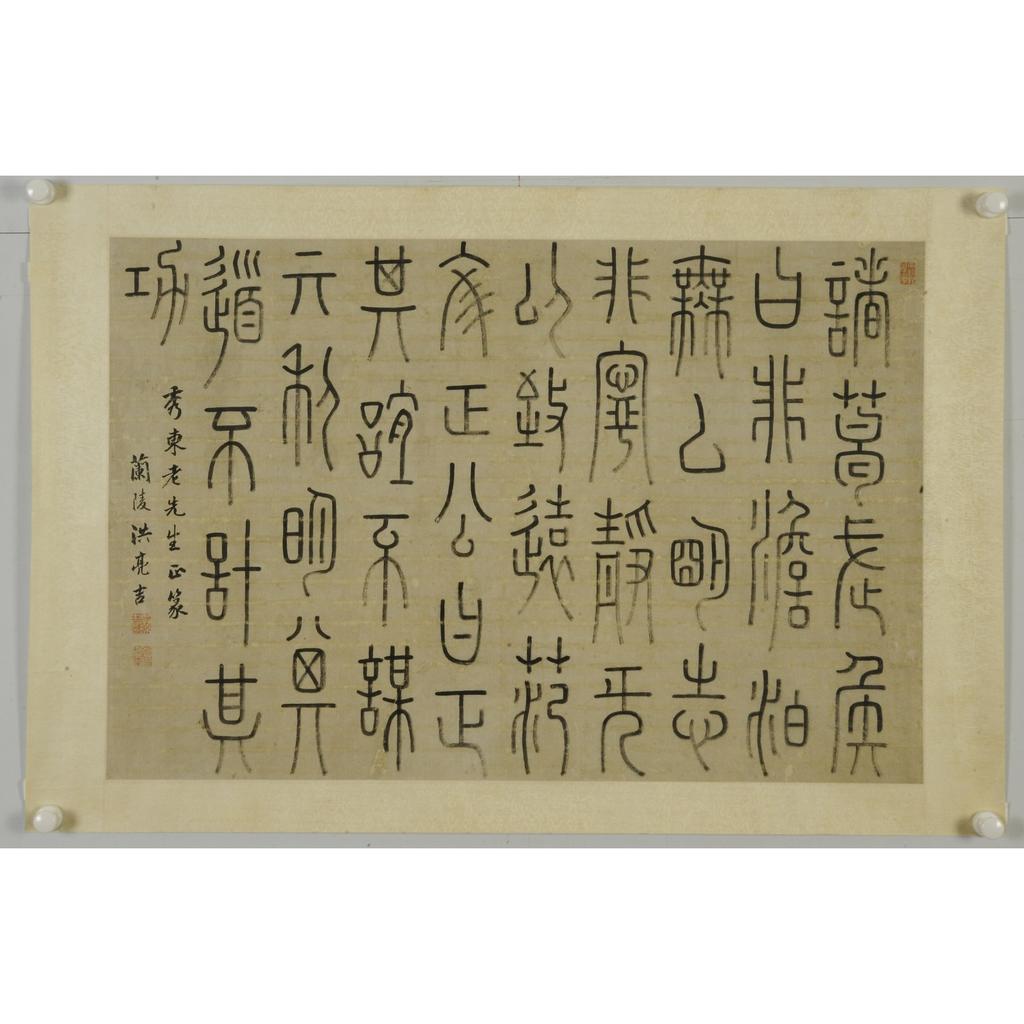 諸葛武侯
曰非澹泊
無以明志
非寧靜无
以致遠范
彣正公曰正
其誼不謀
亓利明其
道不計其
功
秀東老先生正篆
蘭陵洪亮吉